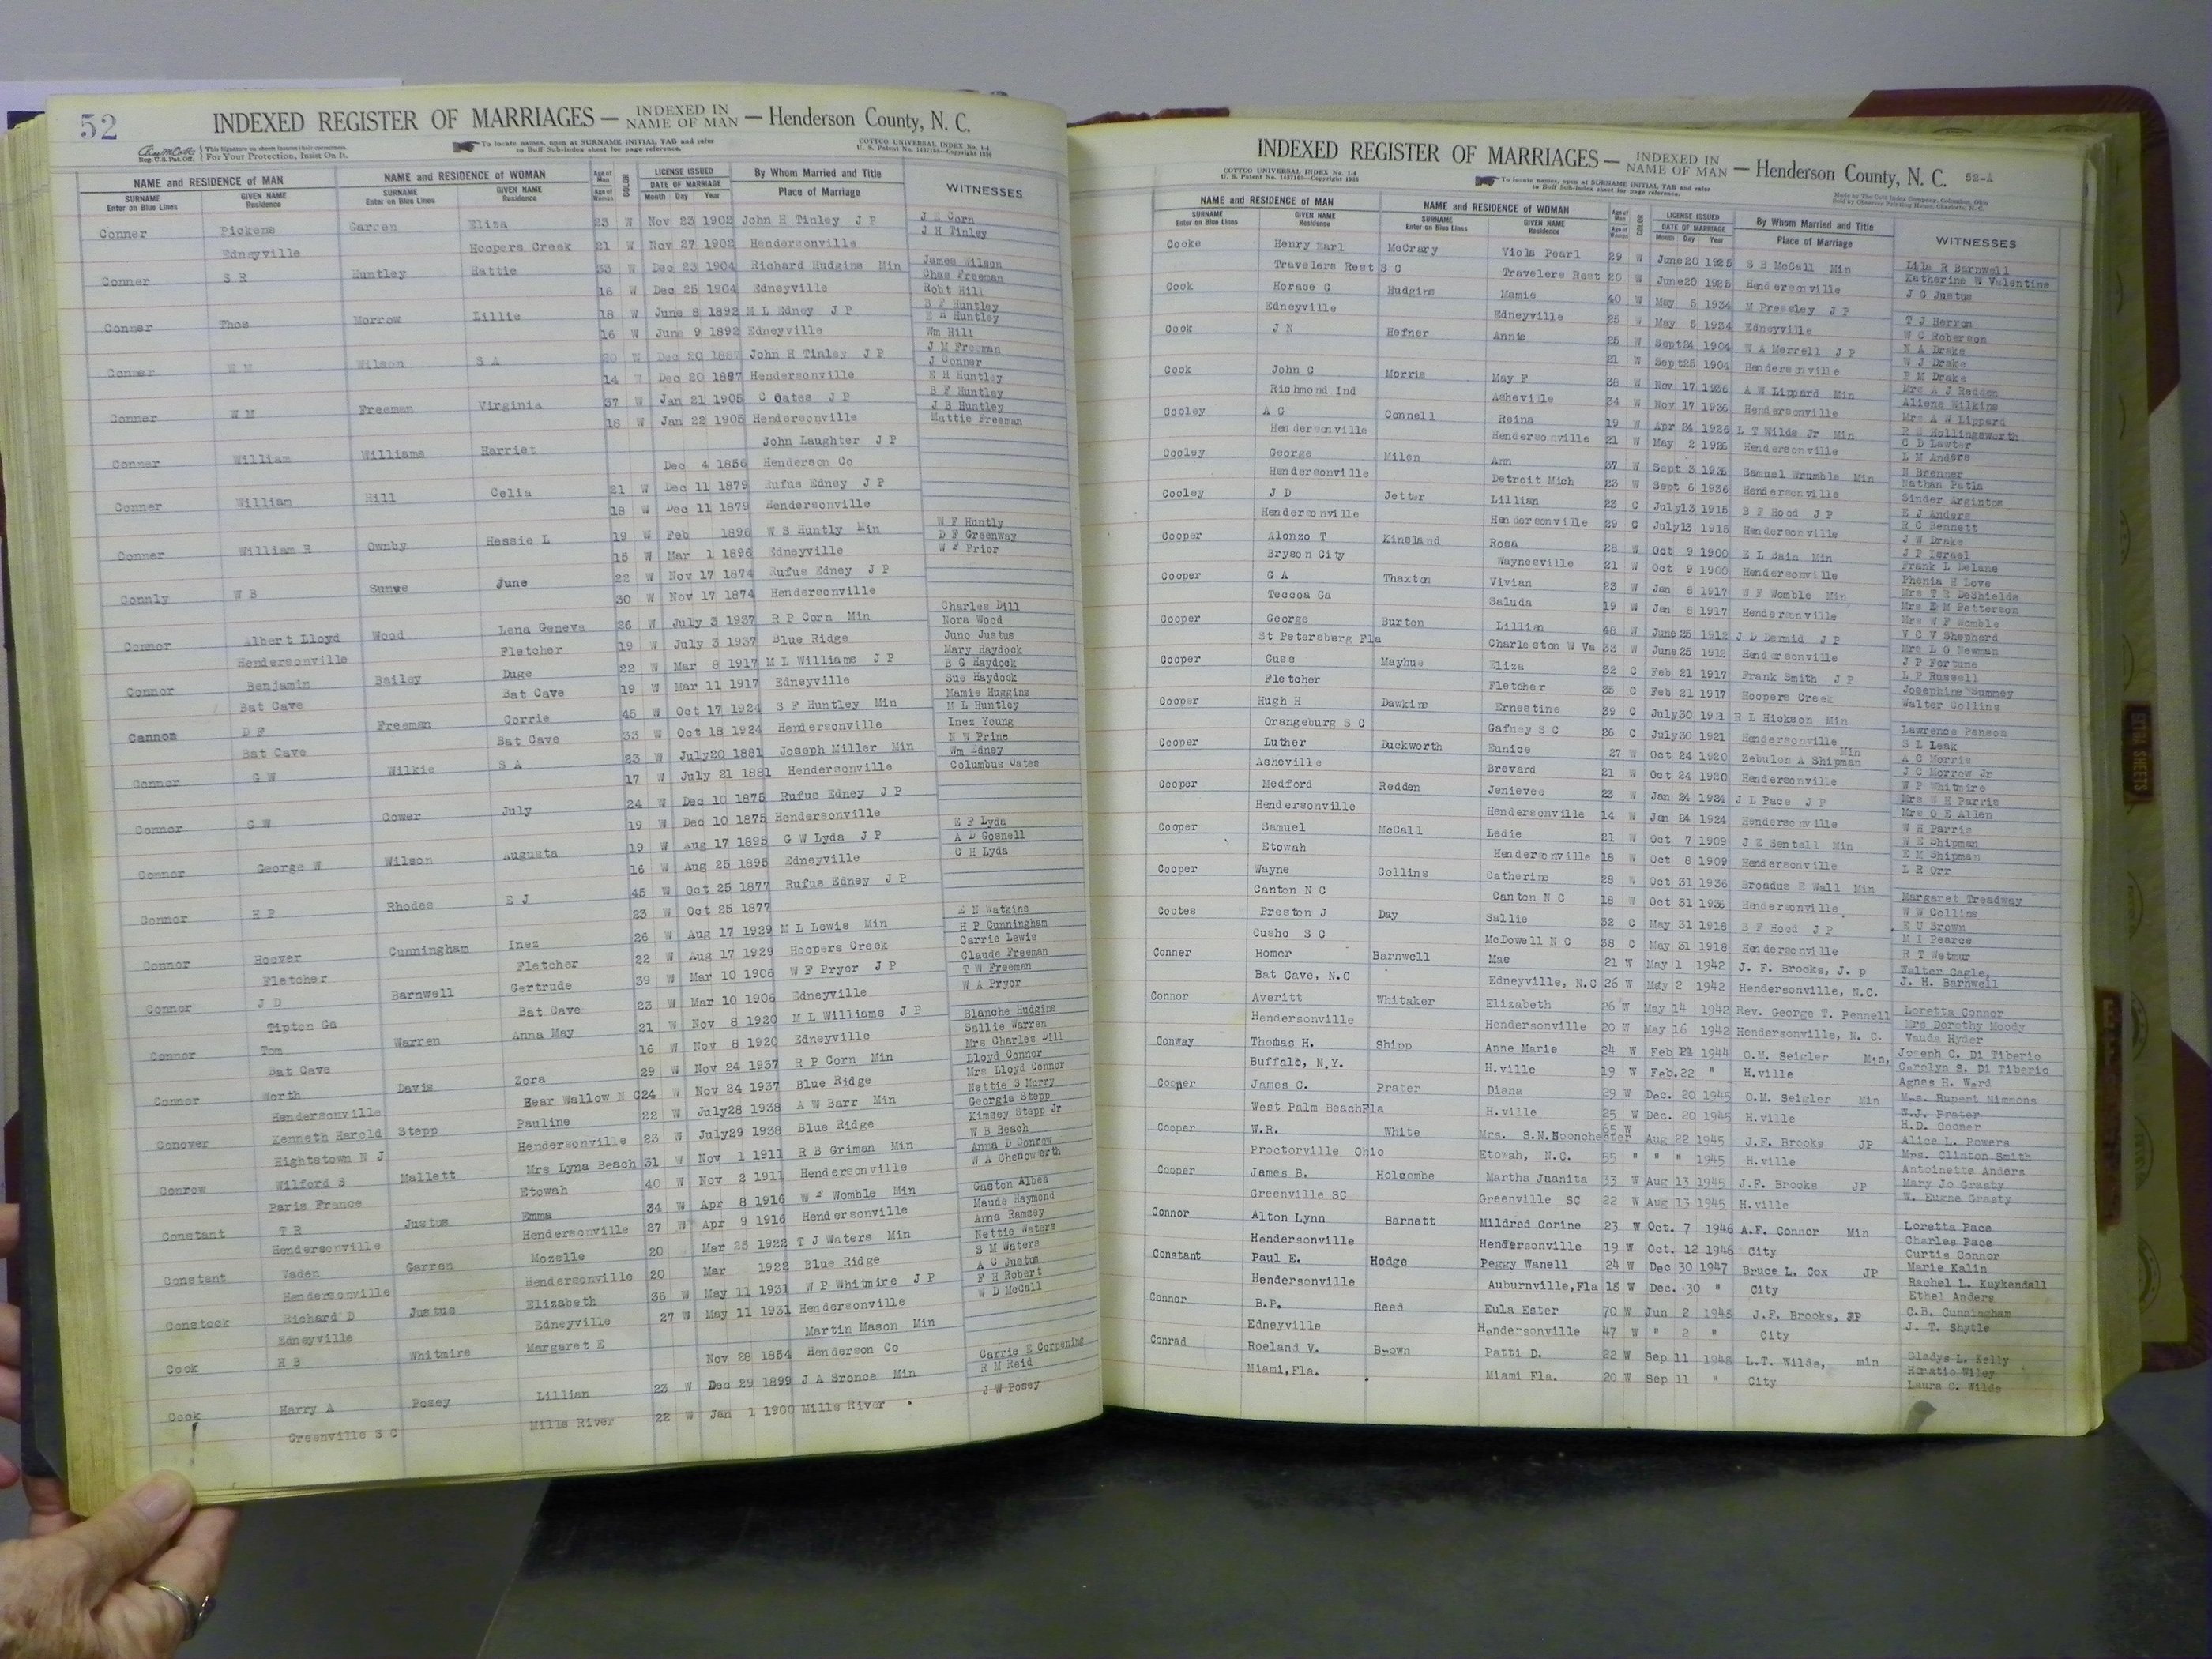 52
INDEXED REGISTER OF MARRIAGES — INDEXED IN NAME OF MAN — Henderson County, N. C.
Reg. U.S. Pat. Off. This Signature on sheets insures their correctness. For Your Protection, Insist On It.
To locate names, open at SURNAME INITIAL TAB and refer to Buff Sub-Index sheet for page reference.
COTTCO UNIVERSAL INDEX No. 1-4
NAME and RESIDENCE OF MAN NAME and RESIDENCE OF WOMAN Age of Man COLOR LICENSE ISSUED By Whom Married and Title WITNESSES
SURNAME Enter on Blue Lines GIVEN NAME Residence SURNAME Enter on Blue Lines GIVEN NAME Residence Age of Woman DATE OF MARRIAGE Month Day Year Place of Marriage
Conner Pickens Garren Eliza 23 W Nov 23 1902 John H Tinley J P J E Corn
Edneyville Hoopers Creek 21 W Nov 27 1902 Hendersonville J H Tinley
Conner S R Huntley Hattie 33 W Dec 23 1904 Richard Hudgins Min James Wilson
16 W Dec 25 1904 Edneyville Chas Freeman
Robt Hill
Conner Thos Morrow Lillie 18 W June 8 1892 M L Edney J P B F Huntley
16 W June 9 1892 Edneyville E A Huntley
Wm Hill
Conner W M Wilson S A 20 W Dec 20 1887 John H Tinley J P J M Freeman
14 W Dec 20 1887 Hendersonville J Conner
E H Huntley
Conner W M Freeman Virginia 37 W Jan 21 1905 C Oates J P B F Huntley
18 W Jan 22 1905 Hendersonville J B Huntley
Mattie Freeman
Conner William Williams Harriet John Laughter J P
Dec 4 1856 Henderson Co
Conner William Hill Celia 21 W Dec 11 1879 Rufus Edney J P
18 W Dec 11 1879 Hendersonville
Conner William R Ownby Hessie L 19 W Feb 1896 W S Huntly Min W F Huntly
15 W Mar 1 1896 Edneyville D F Greenway
W F Prior
Connly W B Sunve June 22 W Nov 17 1874 Rufus Edney J P
30 W Nov 17 1874 Hendersonville
Connor Albert Lloyd Wood Lena Geneva 26 W July 3 1937 R P Corn Min Charles Dill
Hendersonville Fletcher 19 W July 3 1937 Blue Ridge Nora Wood
Juno Justus
Connor Benjamin Bailey Duge 22 W Mar 8 1917 M L Williams J P Mary Haydock
Bat Cave Bat Cave 19 W Mar 11 1917 Edneyville B G Haydock
Sue Haydock
Cannon D F Freeman Corrie 45 W Oct 17 1924 S F Huntley Min Mamie Huggins
Bat Cave Bat Cave 33 W Oct 18 1924 Hendersonville M L Huntley
Inez Young
Connor G W Wilkie S A 23 W July20 1881 Joseph Miller Min N W Princ
17 W July 21 1881 Hendersonville Wm Edney
Columbus Oates
Connor G W Cower July 24 W Dec 10 1875 Rufus Edney J P
19 W Dec 10 1875 Hendersonville
Connor George W Wilson Augusta 19 W Aug 17 1895 G W Lyda J P E F Lyda
16 W Aug 25 1895 Edneyville A D Gosnell
C H Lyda
Connor H P Rhodes E J 45 W Oct 25 1877 Rufus Edney J P
23 W Oct 25 1877
Connor Hoover Cunningham Inez 26 W Aug 17 1929 M L Lewis Min E N Watkins
Fletcher Fletcher 22 W Aug 17 1929 Hoopers Creek H P Cunningham
Carrie Lewis
Connor J D Barnwell Gertrude 39 W Mar 10 1906 W F Pryor J P Claude Freeman
Tipton Ga Bat Cave 23 W Mar 10 1906 Edneyville T W Freeman
W A Pryor
Connor Tom Warren Anna May 21 W Nov 8 1920 M L Williams J P Blanche Hudgins
Bat Cave 16 W Nov 8 1920 Edneyville Sallie Warren
Mrs Charles Dill
Connor Worth Davis Zora 29 W Nov 24 1937 R P Corn Min Lloyd Connor
Hendersonville Bear Wallow N C 24 W Nov 24 1937 Blue Ridge Mrs Lloyd Connor
Nettie S Murry
Conover Kenneth Harold Stepp Pauline 22 W July28 1938 A W Barr Min Georgia Stepp
Hightstown N J Hendersonville 23 W July29 1938 Blue Ridge Kimsey Stepp Jr
W B Beach
Conrow Wilford S Mallett Mrs Lyna Beach 31 W Nov 1 1911 R B Griman Min Anna D Conrow
Paris France Etowah 40 W Nov 2 1911 Hendersonville W A Chenowerth
Constant T R Justus Emma 34 W Apr 8 1916 W F Womble Min Gaston Albea
Hendersonville Hendersonville 27 W Apr 9 1916 Hendersonville Maude Haymond
Anna Ramsey
Constant Vaden Garren Mozelle 20 Mar 25 1922 T J Waters Min Nettie Waters
Hendersonville Hendersonville 20 Mar 1922 Blue Ridge S M Waters
A C Justus
Constock Richard D Justus Elizabeth 36 W May 11 1931 W P Whitmire J P F H Robert
Edneyville Edneyville 27 W May 11 1931 Hendersonville W D McCall
Cook H B Whitmire Margaret E Martin Mason Min
Nov 28 1854 Henderson Co
Cook Harry A Posey Lillian 23 W Dec 29 1899 J A Bronce Min Carrie E Corpening
Greenville S C Mills River 22 W Jan 1 1900 Mills River R M Reid
J W Posey
INDEXED REGISTER OF MARRIAGES — INDEXED IN NAME OF MAN — Henderson County, N. C. 52-A
COTTCO UNIVERSAL INDEX No. 1-4
To locate names, open at SURNAME INITIAL TAB and refer to Buff Sub-Index sheet for page reference.
Made by The Cott Index Company, Columbus, Ohio
Sold by Observer Printing House, Charlotte, N. C.
NAME and RESIDENCE OF MAN NAME and RESIDENCE OF WOMAN Age of Man COLOR LICENSE ISSUED By Whom Married and Title WITNESSES
SURNAME Enter on Blue Lines GIVEN NAME Residence SURNAME Enter on Blue Lines GIVEN NAME Residence Age of Woman DATE OF MARRIAGE Month Day Year Place of Marriage
Cooke Henry Earl McCrary Viola Pearl 29 W June20 1925 S B McCall Min Lila R Barnwell
Travelers Rest S C Travelers Rest 20 W June20 1925 Hendersonville Katherine W Valentine
J G Justus
Cook Horace G Hudgins Mamie 40 W May 5 1934 M Pressley J P
Edneyville Edneyville 25 W May 5 1934 Edneyville T J Herron
W C Roberson
Cook J N Hefner Annie 25 W Sept24 1904 W A Merrell J P N A Drake
21 W Sept25 1904 Hendersonville W J Drake
P M Drake
Cook John C Morris May F 38 W Nov 17 1936 A W Lippard Min Mrs A J Redden
Richmond Ind Asheville 34 W Nov 17 1936 Hendersonville Aliene Wilkins
Mrs A W Lippard
Cooley A G Connell Reina 19 W Apr 24 1926 L T Wilds Jr Min R E Hollingsworth
Hendersonville Hendersonville 21 W May 2 1926 Hendersonville C D Lawter
L M Anders
Cooley George Milen Ann 37 W Sept 3 1936 Samuel Wrumble Min N Brenner
Hendersonville Detroit Mich 23 W Sept 6 1936 Hendersonville Nathan Patla
Sinder Argintos
Cooley J D Jetter Lillian 23 C July13 1915 B F Hood J P E J Anders
Hendersonville Hendersonville 29 C July13 1915 Hendersonville R C Bennett
J W Drake
Cooper Alonzo T Kinsland Rosa 28 W Oct 9 1900 E L Bain Min J P Israel
Bryson City Waynesville 21 W Oct 9 1900 Hendersonville Frank L Delane
Phenia H Love
Cooper G A Thaxton Vivian 23 W Jan 8 1917 W F Womble Min Mrs T R DeShields
Toccoa Ga Saluda 19 W Jan 8 1917 Hendersonville Mrs E M Patterson
Mrs W F Womble
Cooper George Burton Lillian 48 W June25 1912 J D Dermid J P V C V Shepherd
St Petersberg Fla Charleston W Va 33 W June25 1912 Hendersonville Mrs L O Newman
J P Fortune
Cooper Guss Mayhue Eliza 32 C Feb 21 1917 Frank Smith J P L P Russell
Fletcher Fletcher 35 C Feb 21 1917 Hoopers Creek Josephine Summey
Walter Collins
Cooper Hugh H Dawkins Ernestine 39 C July30 1921 R L Hickson Min
Orangeburg S C Gafney S C 26 C July30 1921 Hendersonville Lawrence Penson
S L Leak
Cooper Luther Duckworth Eunice 27 W Oct 24 1920 Zebulon A Shipman Min A C Morris
Asheville Brevard 21 W Oct 24 1920 Hendersonville J C Morrow Jr
W P Whitmire
Cooper Medford Redden Jenieves 23 W Jan 24 1924 J L Pace J P Mrs W H Parris
Hendersonville Hendersonville 14 W Jan 24 1924 Hendersonville Mrs O E Allen
W H Parris
Cooper Samuel McCall Ledie 21 W Oct 7 1909 J E Sentell Min W E Shipman
Etowah Hendersonville 18 W Oct 8 1909 Hendersonville E M Shipman
L R Orr
Cooper Wayne Collins Catherine 28 W Oct 31 1936 Broadus E Wall Min
Canton N C Canton N C 18 W Oct 31 1936 Hendersonville Margaret Treadway
W W Collins
Cootes Preston J Day Sallie 32 C May 31 1918 B F Hood J P E U Brown
Cusho S C McDowell N C 38 C May 31 1918 Hendersonville M I Pearce
R T Wetmur
Conner Homer Barnwell Mae 21 W May 1 1942 J. F. Brooks, J. p Walter Cagle,
Bat Cave, N.C Edneyville, N.C 26 W May 2 1942 Hendersonville, N.C. J. H. Barnwell
Connor Averitt Whitaker Elizabeth 26 W May 14 1942 Rev. George T. Pennell Loretta Connor
Hendersonville Hendersonville 20 W May 16 1942 Hendersonville, N. C. Mrs Dorothy Moody
Vauda Hyder
Conway Thomas H. Shipp Anne Marie 24 W Feb 21 1944 O.M. Seigler Min, Joseph C. Di Tiberio
Buffalo, N.Y. H.ville 19 W Feb.22 " H.ville Carolyn S. Di Tiberio
Agnes H. Ward
Cooper James C. Prater Diana 29 W Dec. 20 1945 O.M. Seigler Min Mrs. Rupert Nimmons
West Palm BeachFla H.ville 25 W Dec. 20 1945 H.ville W.J. Prater
H.D. Cooner
Cooper W.R. White Mrs. S.N.Noonchester 65 W Aug 22 1945 J.F. Brooks JP Alice L. Powers
Proctorville Ohio Etowah, N.C. 55 " " " 1945 H.ville Mrs. Clinton Smith
Antoinette Anders
Cooper James B. Holcombe Martha Juanita 33 W Aug 13 1945 J.F. Brooks JP Mary Jo Grasty
Greenville SC Greenville SC 22 W Aug 13 1945 H.ville W. Eugne Grasty
Connor Alton Lynn Barnett Mildred Corine 23 W Oct. 7 1946 A.F. Connor Min Loretta Pace
Hendersonville Hendersonville 19 W Oct. 12 1946 City Charles Pace
Curtis Connor
Constant Paul E. Hodge Peggy Wanell 24 W Dec 30 1947 Bruce L. Cox JP Marie Kalin
Hendersonville Auburnville,Fla 18 W Dec. 30 " City Rachel L. Kuykendall
Ethel Anders
Connor B.P. Reed Eula Ester 70 W Jun 2 1948 J.F. Brooks, JP C.B. Cunningham
Edneyville Hendersonville 47 W " 2 " City J. T. Shytle
Conrad Roeland V. Brown Patti D. 22 W Sep 11 1948 L.T. Wilds, min Gladys L. Kelly
Miami,Fla. Miami Fla. 20 W Sep 11 " City Horatio Wiley
Laura C. Wilds